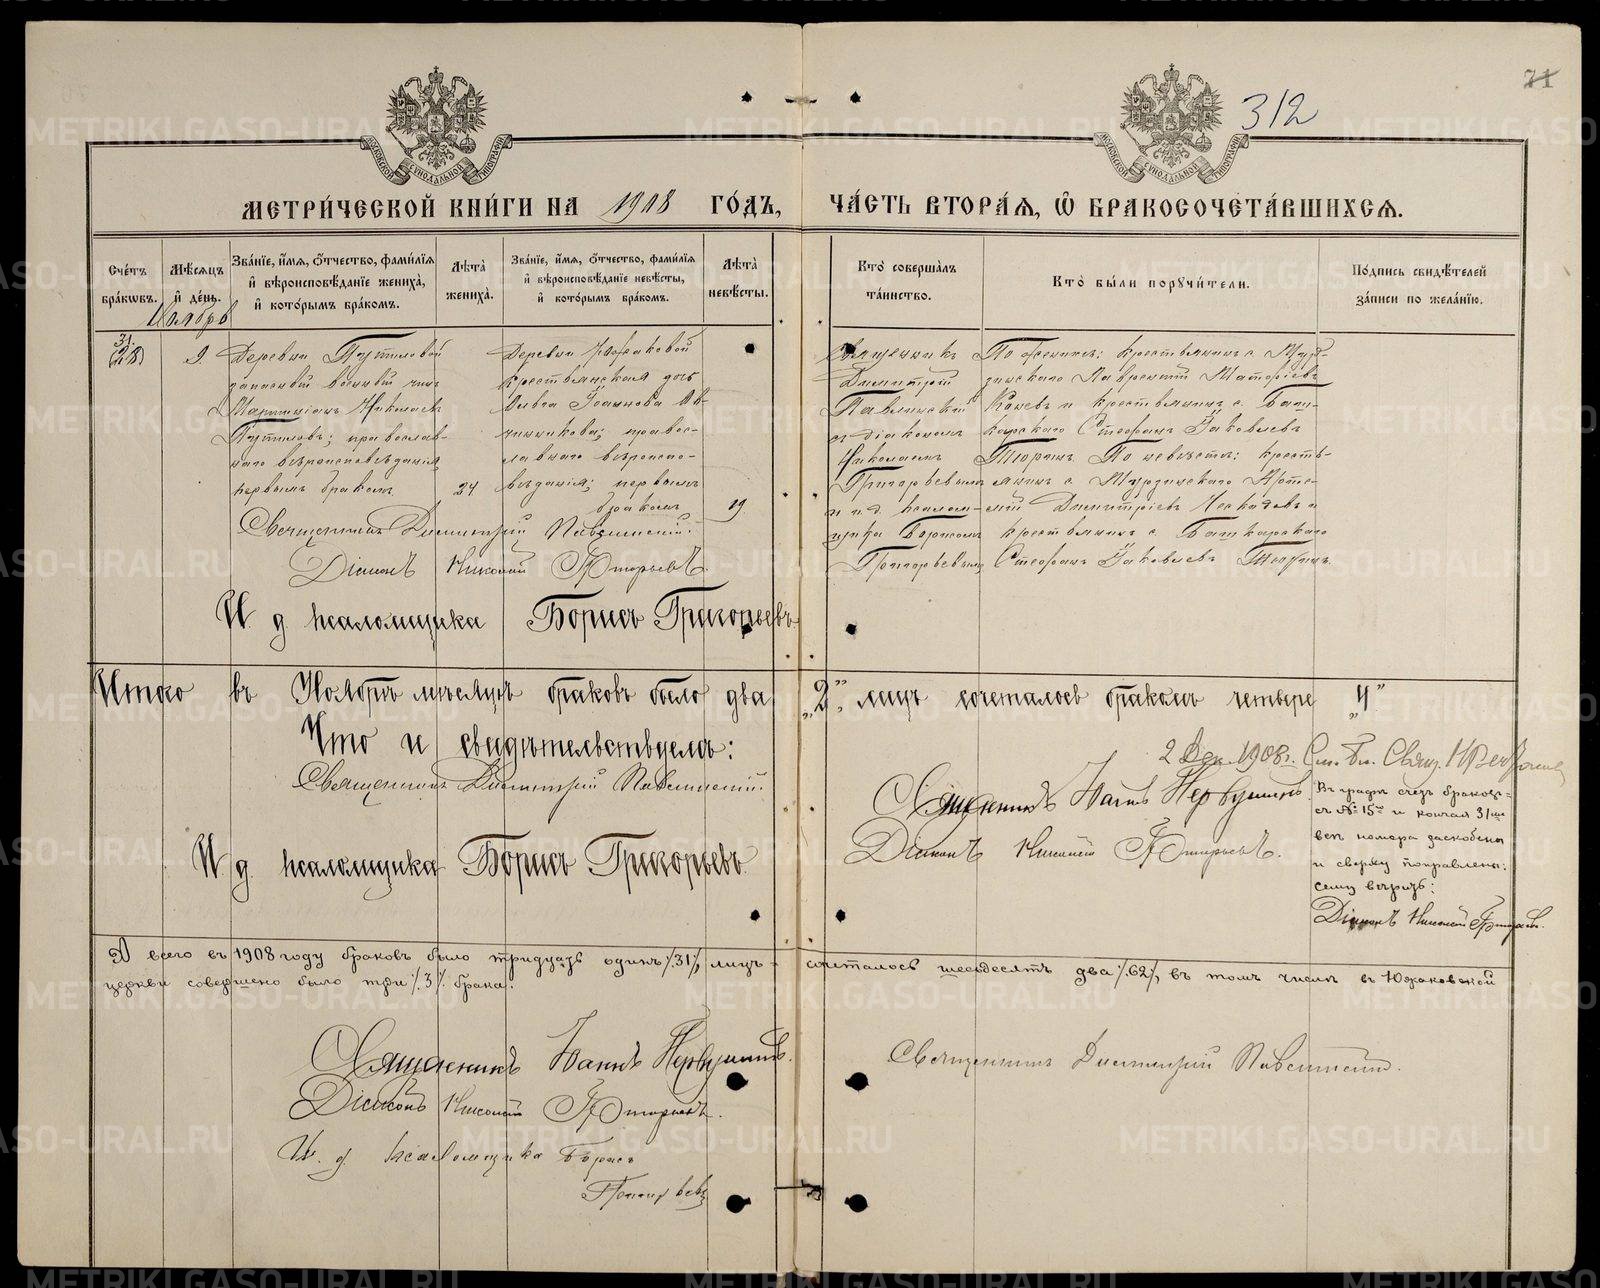 312
МЕТРИ́ЧЕСКОЙ КНИ́ГИ НА 1908 ГО́ДЪ, ЧА́СТЬ ВТОРА́Я, Ѡ҆ БРАКОСОЧЕТА́ВШИХСЯ.
Сче́тъ бра́кѡвъ.
Мѣ́сяцъ и҆ де́нь.
Зва́нїе, и҆́мя, ѻ҆́тчество, фами́лїя и҆ вѣроисповѣ́данїе жениха̀, и҆ кото́рымъ бра́комъ.
Лѣ́та̀ жениха̀.
Зва́нїе, и҆́мя, ѻ҆́тчество, фами́лїя и҆ вѣроисповѣ́данїе невѣ́сты, и҆ кото́рымъ бра́комъ.
Лѣ́та̀ невѣ́сты.
Кто̀ соверша́лъ та́инство.
Кто̀ бы́ли порꙋчи́тели.
По́дпись свидѣ́телей за́писи по жела́нїю.
Ноябрь
31.
(28)
9.
Деревни Путиловой
запасный военный чин
Мартиніанъ Николаевъ
Путиловъ; православ-
наго вѣроисповѣданія,
первымъ бракомъ
24
Деревни Южаковой
крестьянская дочь
Ольга Іоаннова Ов-
чинникова; правос-
лавнаго вѣроиспо-
вѣданія; первымъ
бракомъ
19.
Священникъ
Димитрій
Павлинскій
и діаконом
Николаемъ
Григорьевымъ
и и.д. псалом-
щика Борисом
Григорьевымъ
По женихѣ: крестьянинъ с. Мур-
зинскаго Лаврентій
Коневъ и крестьянинъ с. Баш-
карскаго Стефанъ Іаковлевъ
По невѣстѣ: кресть-
янинъ с. Мурзинскаго
Димитріевъ
крестьянинъ с. Башкарскаго
Стефанъ Іаковлевъ
Священникъ Димитрій Павлинскій.
Діаконъ Николай Григорьевъ.
И. д. псаломщика Борисъ Григорьевъ
Итого въ Ноябрѣ мѣсяцѣ браковъ было два „2“, лицъ сочеталось бракомъ четверо „4“
Что и свидѣтельствуемъ:
Священникъ Димитрій Павлинскій.
И. д. псаломщика Борисъ Григорьевъ.
2 Дек. 1908 г.
Священникъ Іоаннъ Первушинъ.
Діаконъ Николай Григорьевъ.
Въ графѣ счетъ браковъ
съ № 15го и кончая 31ым
всѣ номера заскоблены
и сверху поправлены:
сему вѣрить:
Діаконъ Николай Григорьевъ.
А всего въ 1908 году браковъ было тридцать одинъ /.31/., лицъ сочеталось шестьдесятъ два /.62/., въ томъ числѣ въ Южаковской
церкви совершено было три /.3/. брака.
Священникъ Іоаннъ Первушинъ.
Діаконъ Николай Григорьевъ.
И. д. Псаломщика Борисъ
Григорьевъ
Священникъ Димитрій Павлинскій.
METRIKI.GASO-URAL.RU